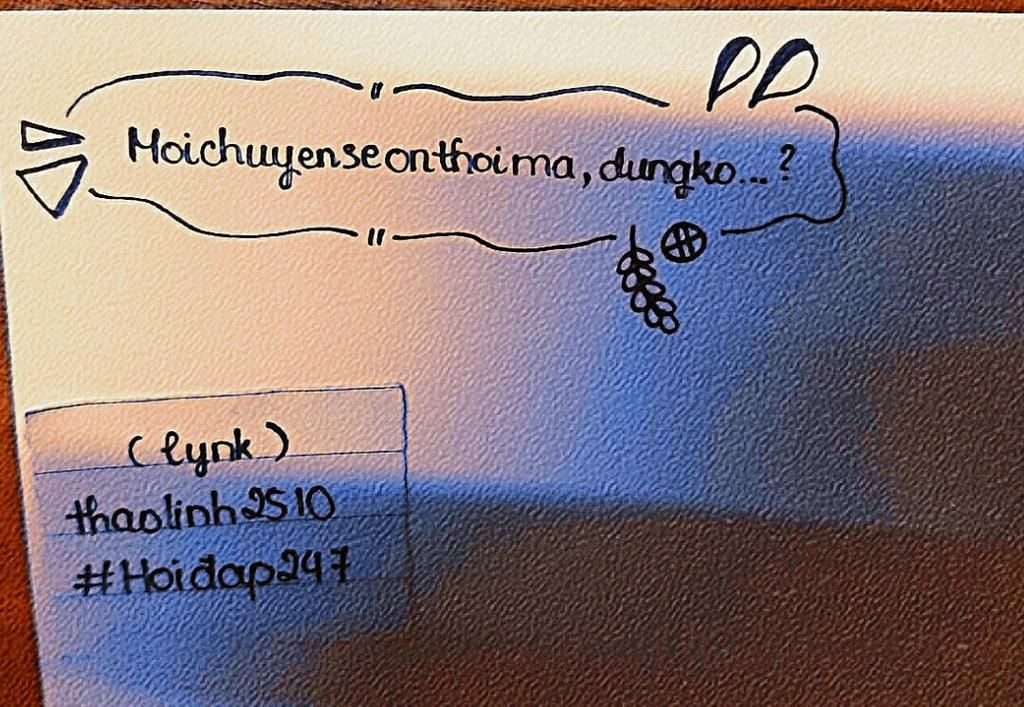 Moichuyenseonthoima, dungko...?
(lynk)
thaolinh2510
#Hoiđap247